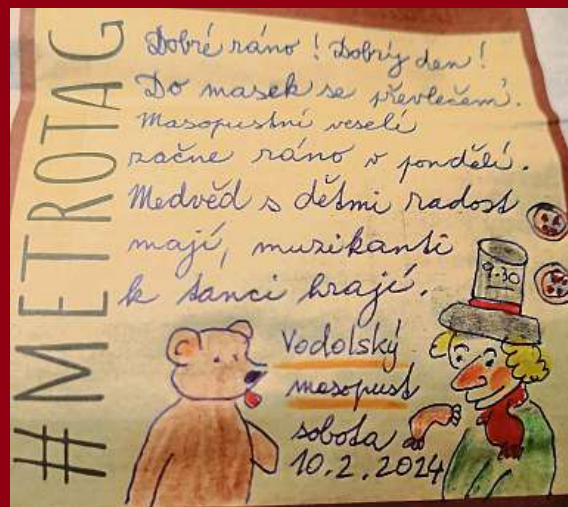 #METROTAG
Dobré ráno! Dobrý den!
Do masek se převlečem.
Masopustní veselí
začne ráno v pondělí.
Medvěd s dětmi radost
mají, muzikanti
k tanci hrají.
9.30
Vodolský
masopust
sobota
10.2.2024